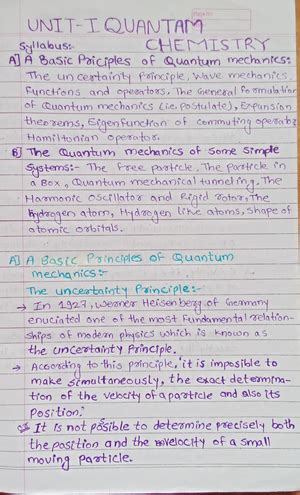 UNIT-I QUANTAM
CHEMISTRY
Syllabus:-
A] A Basic Priciples of Quantum mechanics:-
The uncertainty Principle, Wave mechanics,
Functions and operators, The General Formulation
of Quantum mechanics (i.e. Postulate), Expansion
theorems, Eigenfunction of commuting operator
Hamiltonian operator.
B] The Quantum mechanics of Some Simple
Systems:- The Free particle, The Particle in
a Box, Quantum mechanical tunneling, The
Harmonic Oscillator and Rigid rotor, The
hydrogen atom, Hydrogen like atoms, shape of
atomic orbitals.
A] A Basic Principles of Quantum
mechanics:-
The uncertainty Principle:-
→ In 1927, Werner Heisenberg of Germany
enuciated one of the most Fundamental relation-
ships of modern physics which is known as
the uncertainty Principle.
→ According to this principle, "it is imposible to
make simultaneously, the exact determina-
tion of the velocity of a particle and also its
Position."
It is not possible to determine precisely both
the position and the velocity of a small
moving Particle.